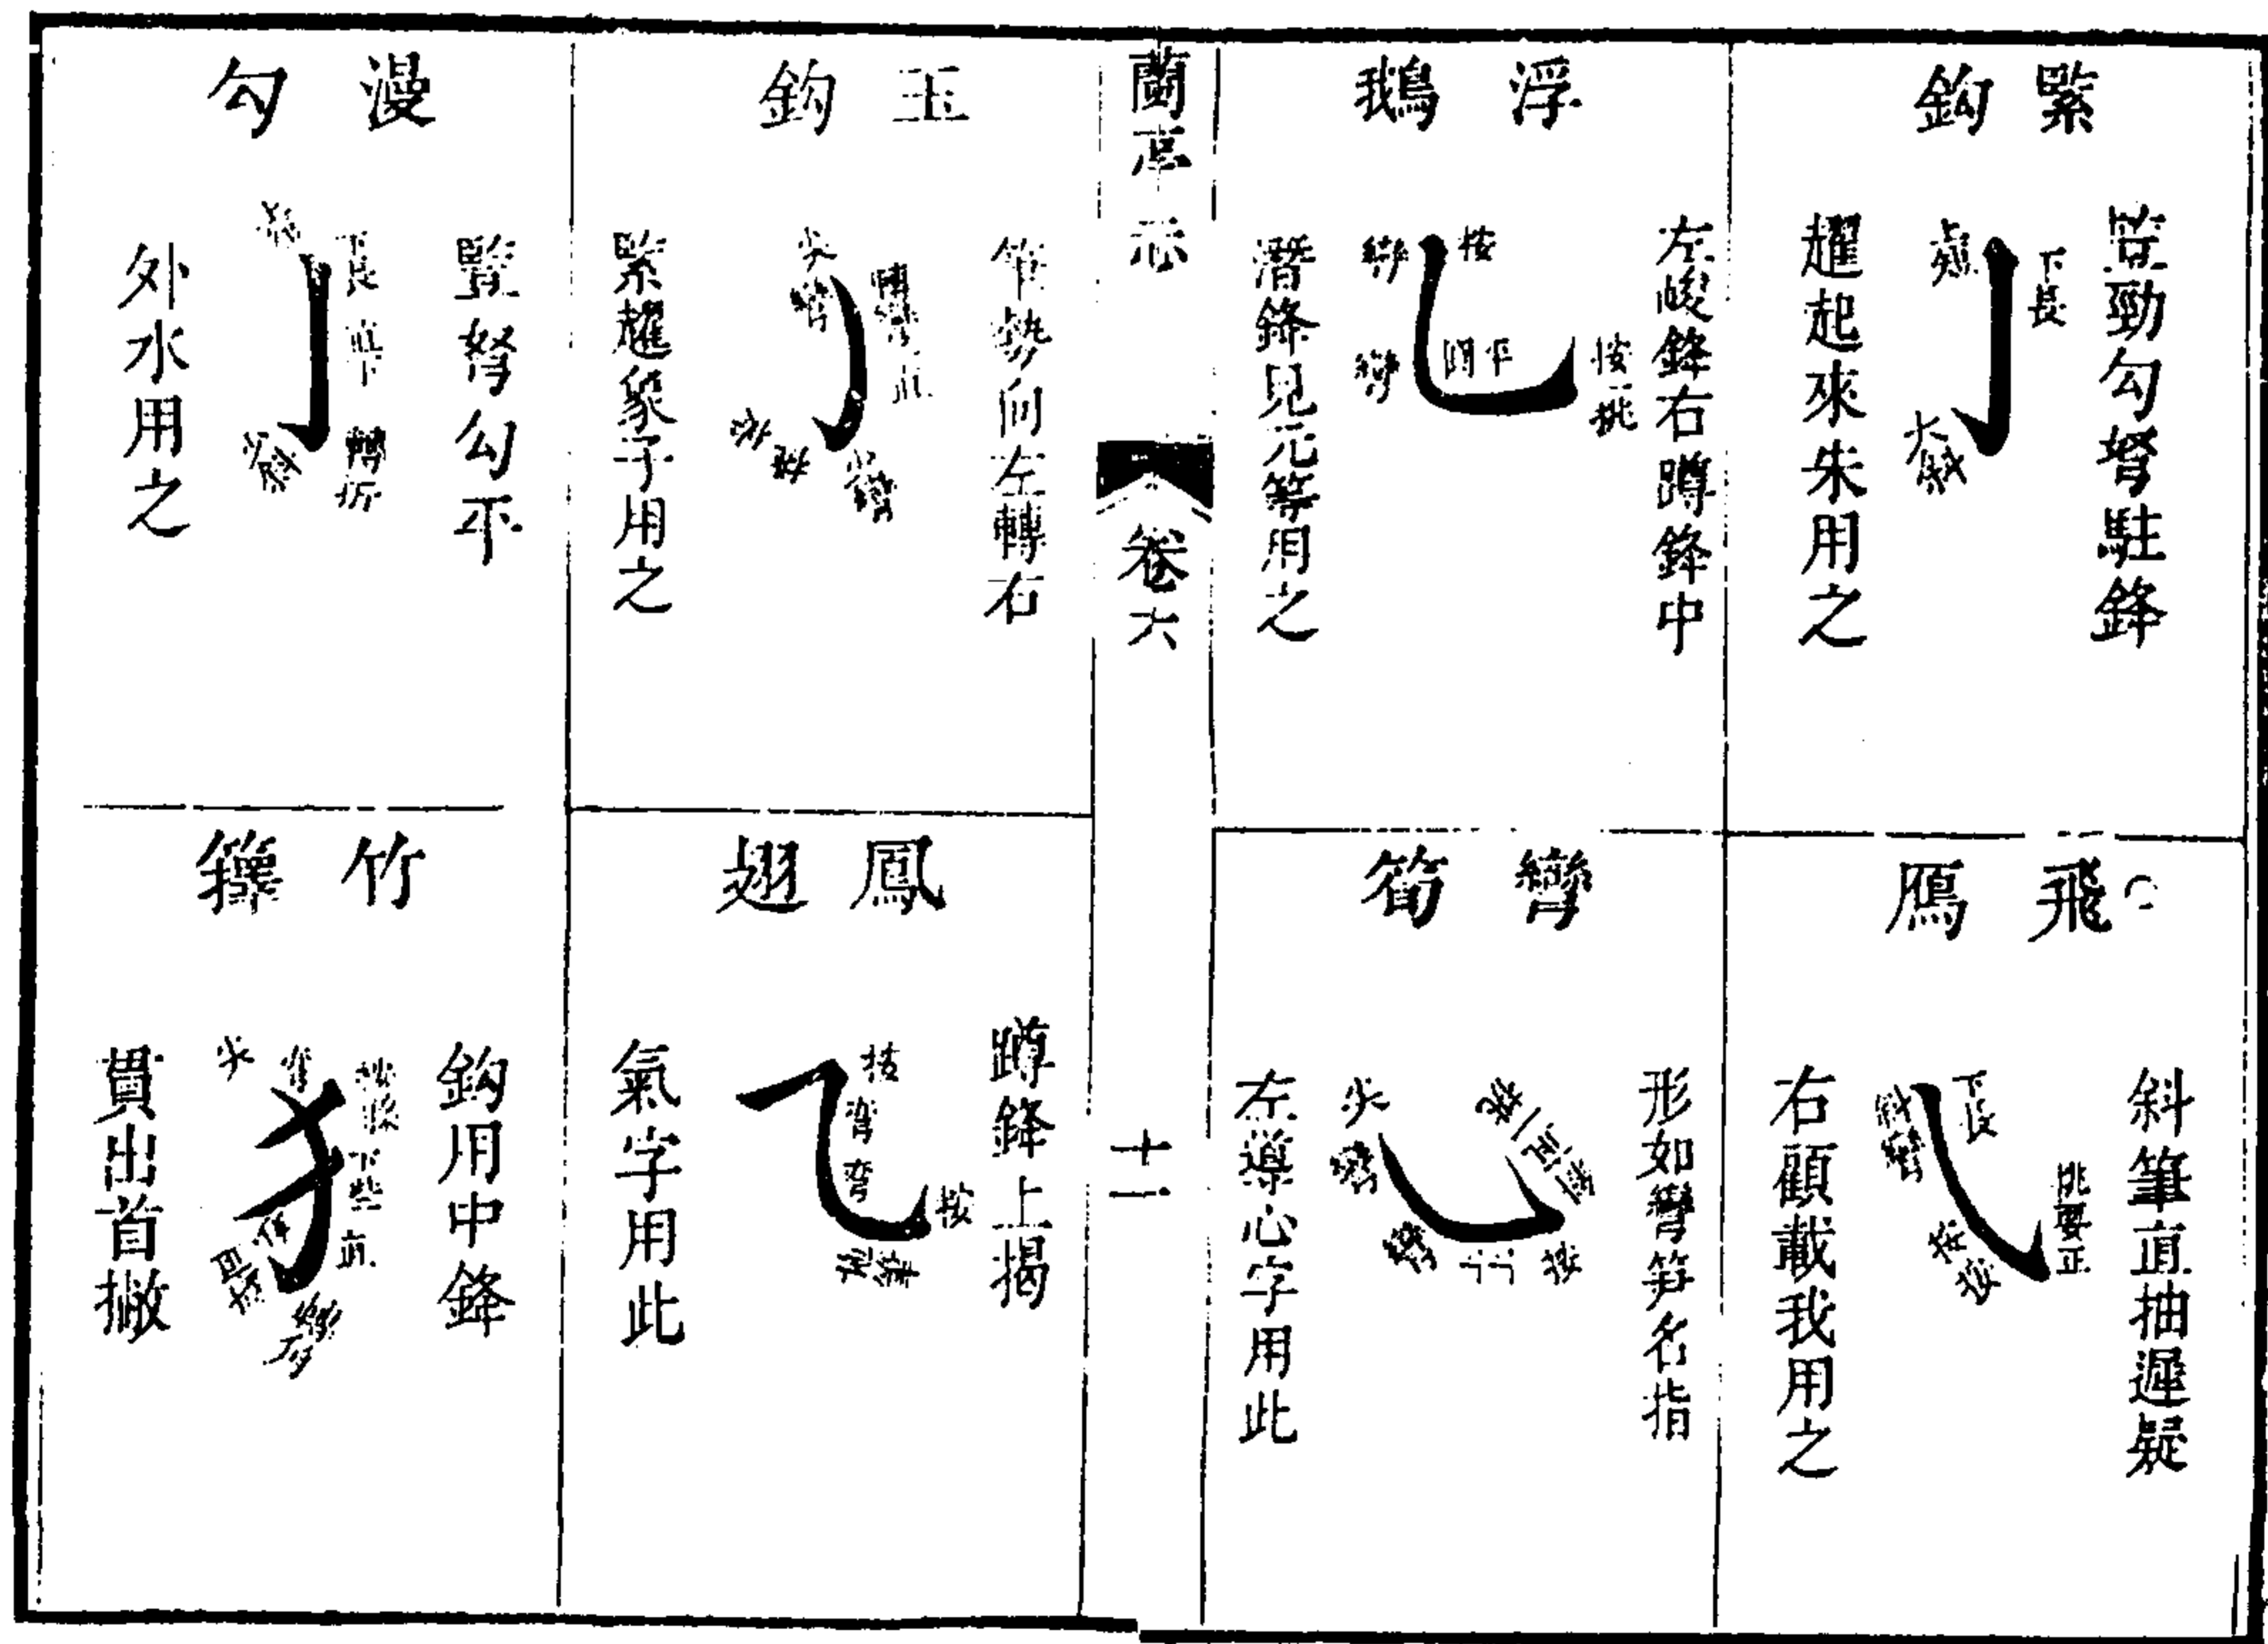 緊鈎
筻勁勾努駐鋒
下長
趯起來朱用之
飛鴈
斜筆直抽遲疑
下長
挑要正
右顧載我用之
浮鵝
左峻鋒右蹲鋒中
按
按挑
平
彎
潛鋒見元等用之
彎筍
形如彎笋名指
尖
按
左導心字用此
蘭亭志
卷六
十一
玉鈎
筆勢向左轉右
尖彎
緊趯象子用之
鳳翅
蹲鋒上揭
按
彎
弯
按
氣字用此
漫勾
豎努勾平
下長
直下
轉折
外水用之
竹籜
鈎用中鋒
尖
下些
直
貫出首撇